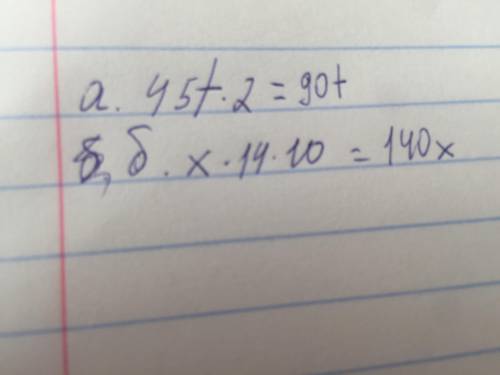 а. 45t·2 = 90t
б. x·14·10 = 140x